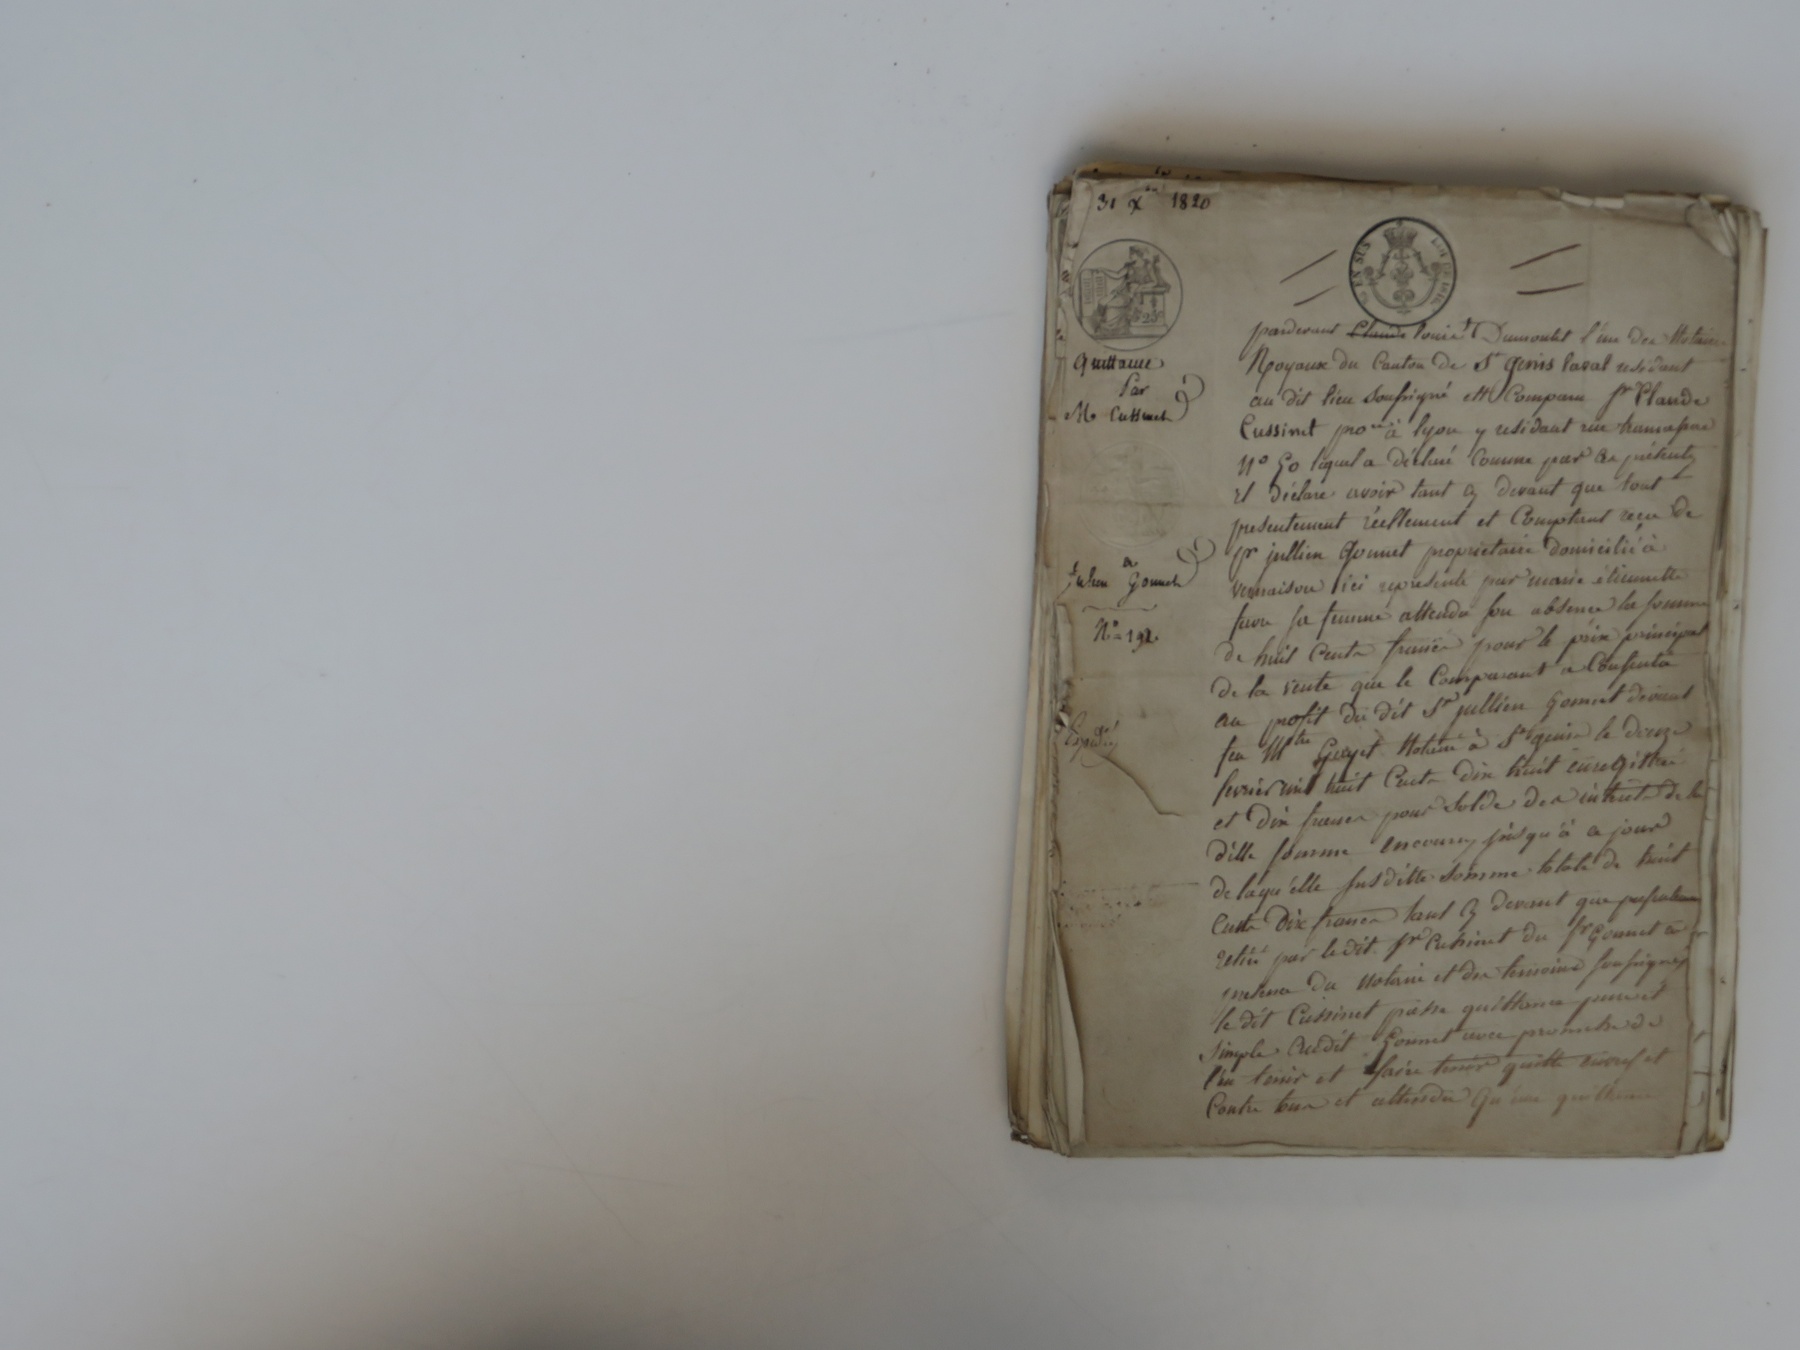 31 Xbre 1820
EN SUS
LOI DE 1816
25c
Quittance
Par
Mr Cussinet
a
Julien Gonnet
No 192
Expédié
pardevant Claude Louis Dumontet l'un des Notaires
Royaux du Canton de St genis laval residant
au dit lieu soussigné est Comparu Sr Claude
Cussinet à lyon y residant rue
No 50 lequel a déclaré Comme par Ces présentes
il déclare avoir tant Cy devant que tout
presentement réellement et Comptant reçu de
Sr jullien Gonnet proprietaire domicilié à
vernaison ici representé par marie étiennette
favre sa femme attendu son absence la somme
de huit Cents francs pour le prix principal
de la vente que le Comparant a Consentie
au profit du dit Sr jullien Gonnet devant
feu Mtre Guyet Notaire à St genis le douze
fevrier mil huit Cents dix huit enregistrée
et dix francs pour solde des intérêts de la
ditte somme encourus jusqu'à ce jour
de laqu'elle susditte somme totale de huit
Cents Dix francs tant Cy devant que presentement
retiré par le dit Sr Cussinet du Sr Gonnet en
presence du Notaire et des temoins soussignés
le dit Cussinet passe quittance pure et
simple audit Gonnet avec promesse de
l'en tenir et faire tenir quitte envers et
Contre tous et attendu Qu'une quittance